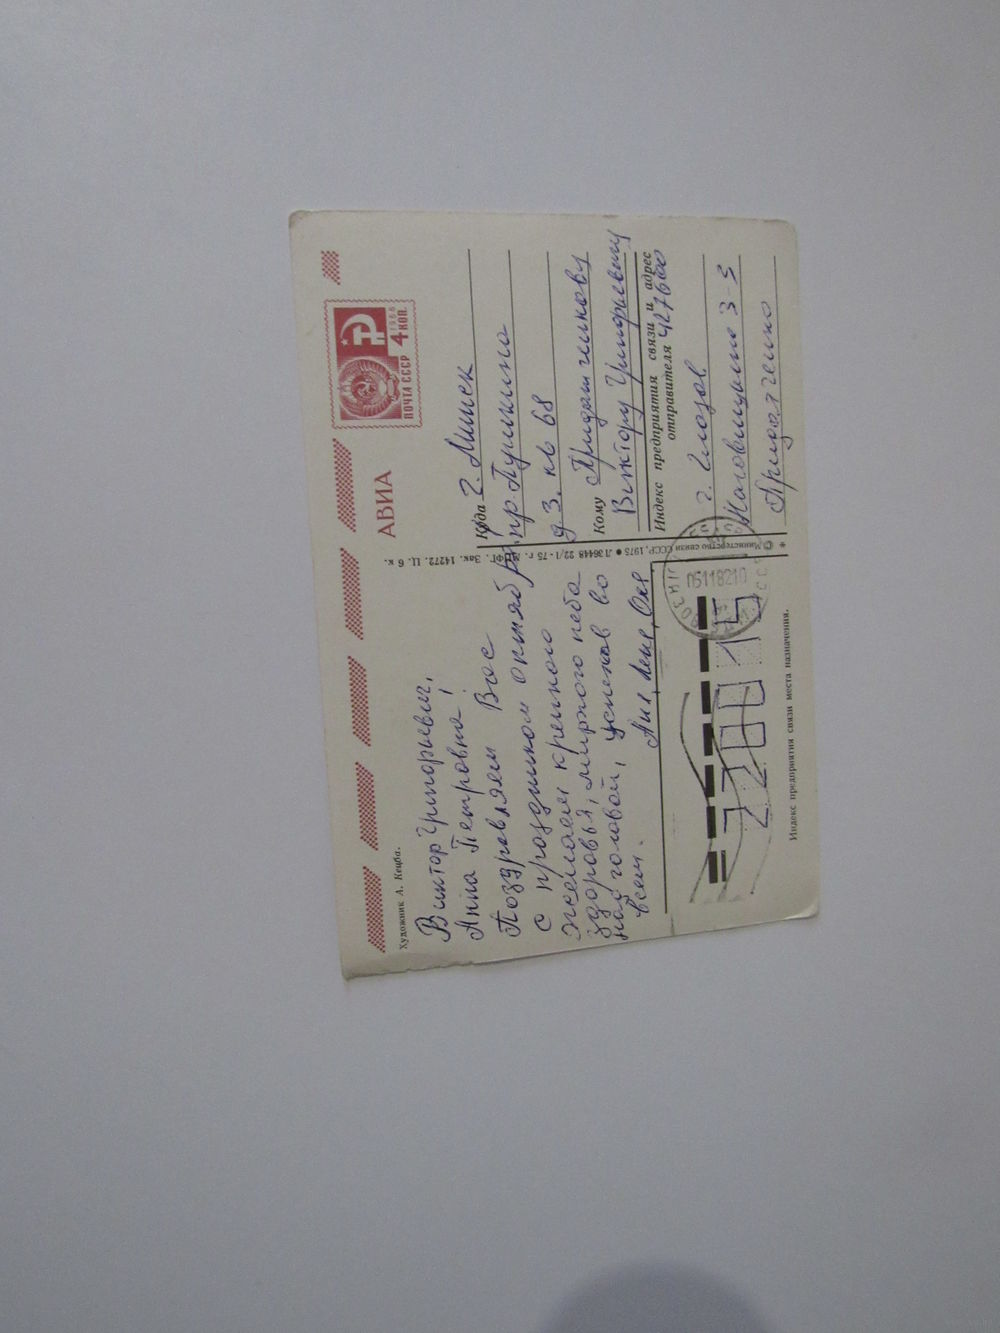 АВИА
ПОЧТА СССР 4 КОП.
1966
Художник А. Кецба.
Виктор Григорьевич,
Анна Петровна!
Поздравляем Вас
с праздником октября.
желаем крепкого
здоровья, мирного неба
над головой, успехов во
всем.
Куда г. Минск
пр Пушкина
д 3. кв 68
Кому
Виктору Григорьевичу
Индекс предприятия связи и адрес
отправителя 427600
г. Глазов
3-3
© Министерство связи СССР, 1975 ● Л36448 22/I-75 г. МПФГ. Зак. 14272. Ц. 6 к.
220015
Индекс предприятия связи места назначения.